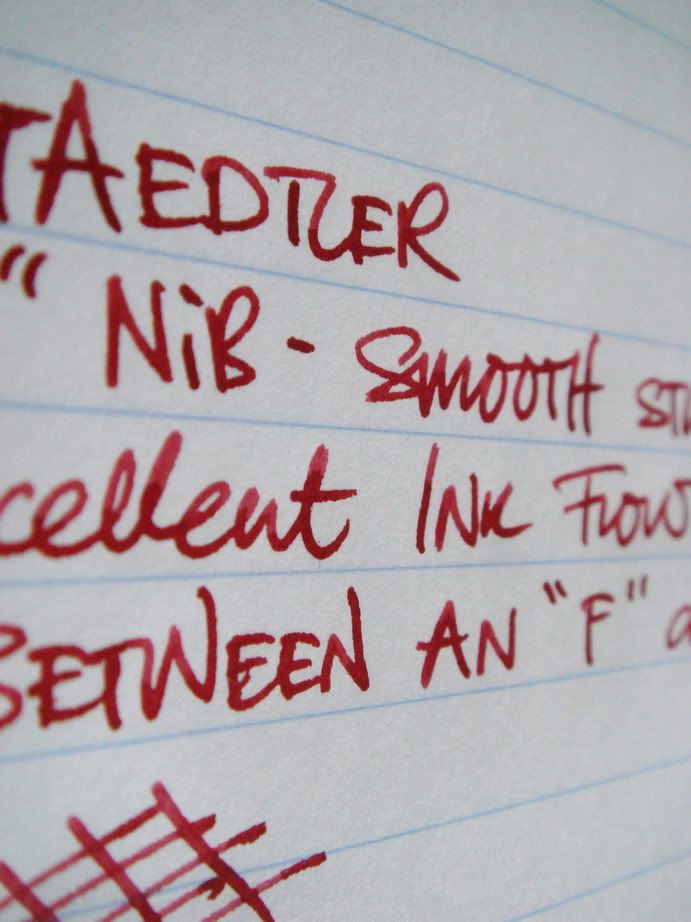 TAEDTLER
" NiB - SMOOTH ST
cellent INK FLOW
BETWEEN AN "F"